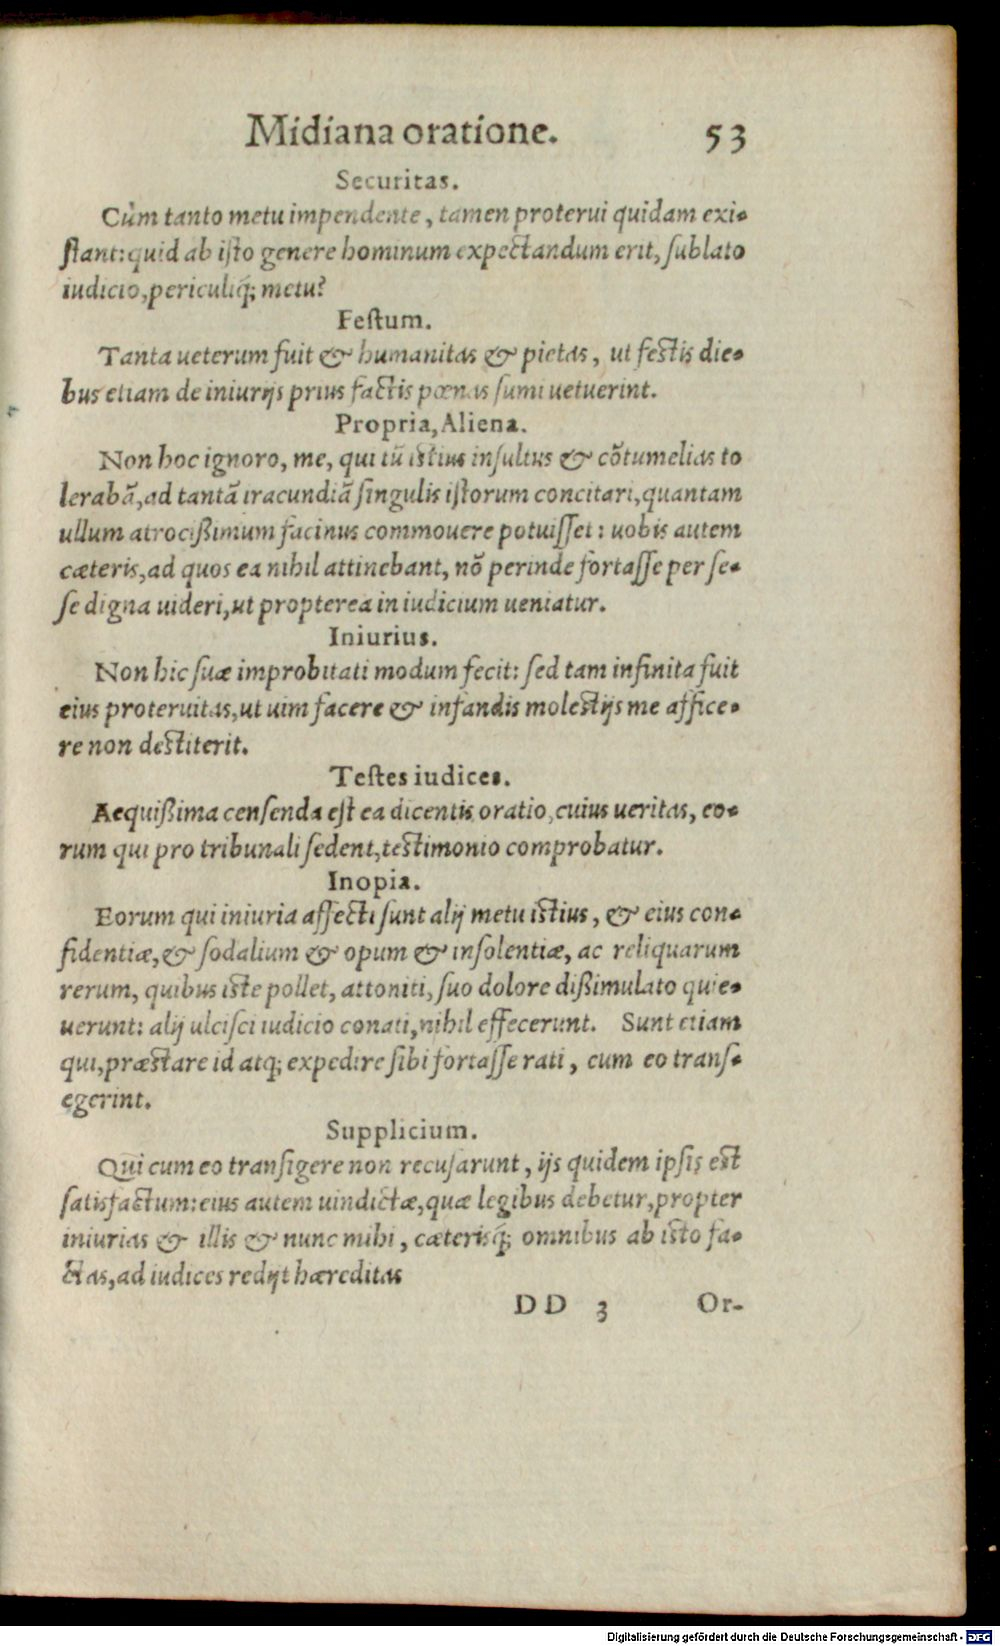 Midiana oratione. 53
Securitas.
Cùm tanto metu impendente, tamen proterui quidam exi-
ſtant: quid ab iſto genere hominum expectandum erit, ſublato
iudicio, periculiq́; metu?
Feſtum.
Tanta ueterum fuit & humanitas & pietas, ut feſtis die-
bus etiam de iniurijs prius factis pœnas ſumi uetuerint.
Propria, Aliena.
Non hoc ignoro, me, qui tũ iſtius inſultus & cõtumelias to
lerabã, ad tantã iracundiã ſingulis iſtorum concitari, quantam
ullum atrocißimum facinus commouere potuiſſet: uobis autem
cæteris, ad quos ea nihil attinebant, nõ perinde fortaſſe per ſe-
ſe digna uideri, ut propterea in iudicium ueniatur.
Iniurius.
Non hic ſuæ improbitati modum fecit: ſed tam infinita fuit
eius proteruitas, ut uim facere & infandis moleſtijs me affice-
re non deſtiterit.
Teſtes iudices.
Aequißima cenſenda eſt ea dicentis oratio, cuius ueritas, eo-
rum qui pro tribunali ſedent, teſtimonio comprobatur.
Inopia.
Eorum qui iniuria affecti ſunt alij metu iſtius, & eius con-
fidentiæ, & ſodalium & opum & inſolentiæ, ac reliquarum
rerum, quibus iſte pollet, attoniti, ſuo dolore dißimulato quie-
uerunt: alij ulciſci iudicio conati, nihil effecerunt. Sunt etiam
qui, præſtare id atq; expedire ſibi fortaſſe rati, cum eo tranſ-
egerint.
Supplicium.
Qui cum eo tranſigere non recuſarunt, ijs quidem ipſis eſt
ſatisfactum: eius autem uindictæ, quæ legibus debetur, propter
iniurias & illis & nunc mihi, cæterisq́; omnibus ab iſto fa-
ctas, ad iudices redijt hæreditas
DD 3 Or-
Digitalisierung gefördert durch die Deutsche Forschungsgemeinschaft - DFG